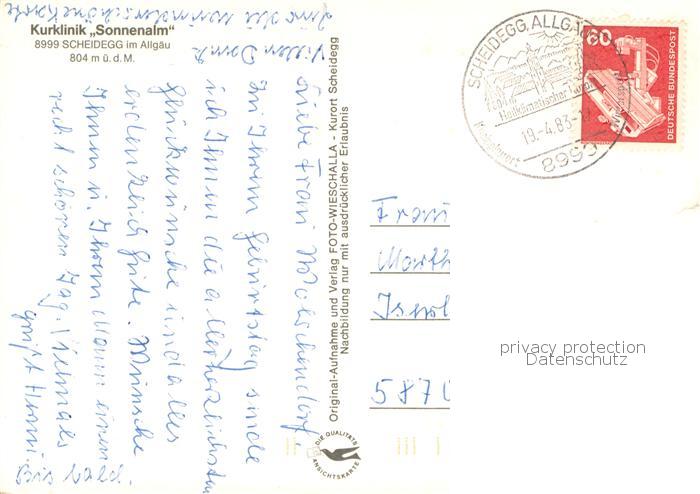 Kurklinik „Sonnenalm"
8999 SCHEIDEGG im Allgäu
804 m ü. d. M.
Vielen Dank
für die wunderschöne Karte
Liebe Frau
zu Ihrem Geburtstag sende
ich Ihnen die allerherzlichsten
Glückwünsche und alles
erdenklich Gute. Wünsche
Ihnen u. Ihrem Mann einen
recht schönen Tag.
grüßt
Original-Aufnahme und Verlag FOTO-WIESCHALLA - Kurort Scheidegg
Nachbildung nur mit ausdrücklicher Erlaubnis
DIE QUALITÄTS
ANSICHTSKARTE
SCHEIDEGG, ALLGÄU
Heilklimatischer Kurort
19.-4.83
8999
60
DEUTSCHE BUNDESPOST
Frau
Marth
Iserl
587
privacy protection
Datenschutz